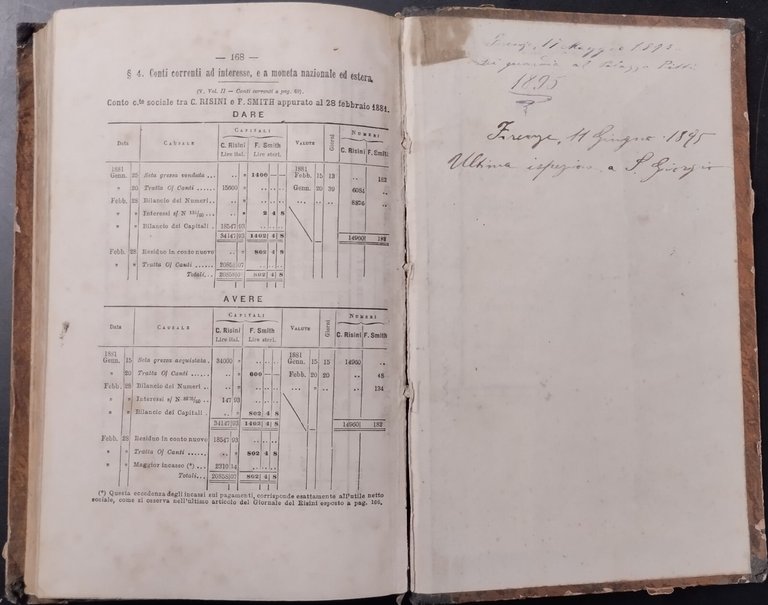 — 168 —
§ 4. Conti correnti ad interesse, e a moneta nazionale ed estera.
(V. Vol. II — Conti correnti a pag. 69).
Conto c.te sociale tra C. RISINI e F. SMITH appurato al 28 febbraio 1881.
DARE
Data CAUSALE CAPITALI VALUTE Giorni NUMERI
C. Risini F. Smith C. Risini F. Smith
Lire ital. Lire sterl.
1881 1881
Genn. 15 Seta grezza venduta ... .. » 1400 — — Febb. 15 13 .. 182
» 20 Tratta Of Canti ...... 15600 » .. .. .. Genn. 20 39 6084 ..
Febb. 28 Bilancio dei Numeri .. .. » .. .. .. 8876 ..
» » Interessi s/ N .. » 2 4 8
» » Bilancio dei Capitali . 18547 93 .. .. ..
34147 93 1402 4 8 14960 182
Febb. 28 Residuo in conto nuovo .. » 802 4 8
» » Tratta Of Canti ...... 20858 07 .. .. ..
Totali... 20858 07 802 4 8
AVERE
Data CAUSALE CAPITALI VALUTE Giorni NUMERI
C. Risini F. Smith C. Risini F. Smith
Lire ital. Lire sterl.
1881 1881
Genn. 15 Seta grezza acquistata . 34000 » .. .. .. Genn. 15 15 14960 ..
» 20 Tratta Of Canti ...... .. » 600 — — Febb. 20 20 .. 48
Febb. 28 Bilancio dei Numeri .. .. » .. .. .. ... » .. .. 134
» » Interessi s/ N 147 93 .. .. ..
» » Bilancio dei Capitali . .. » 802 4 8
34147 93 1402 4 8 14960 182
Febb. 28 Residuo in conto nuovo 18547 93 .. .. ..
» » Tratta Of Canti ...... .. » 802 4 8
» » Maggior incasso (*) ... 2310 14 .. .. ..
Totali... 20858 07 802 4 8
(*) Questa eccedenza degli incassi sui pagamenti, corrisponde esattamente all'utile netto
sociale, come si osserva nell'ultimo articolo del Giornale del Risini esposto a pag. 166.
Firenze, 11 Maggio 1895
Di guardia al Palazzo Pitti
1895
Firenze, 11 Giugno 1895
Ultima ispezione a S. Giorgio